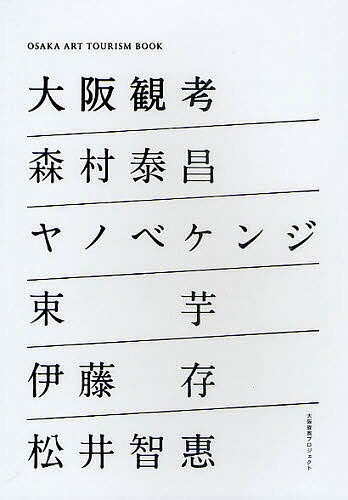 OSAKA ART TOURISM BOOK
大阪観考
森村泰昌
ヤノベケンジ
束芋
伊藤存
松井智惠
大阪プロジェクト